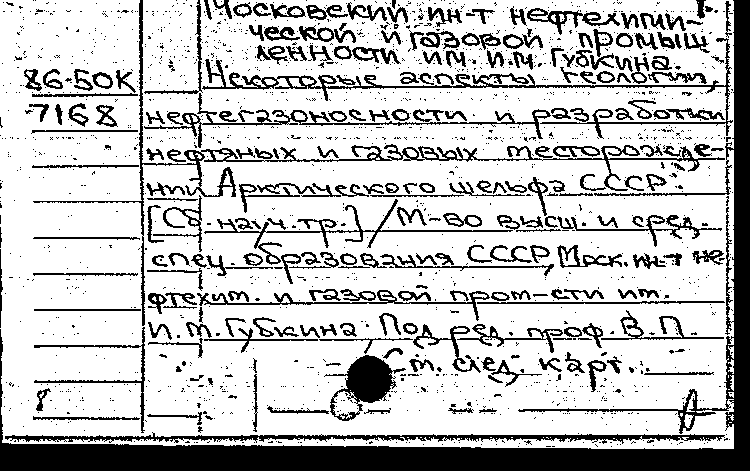 Московский ин-т нефтехими-
ческой и газовой промыш-
ленности им. И.М. Губкина.
86-50К Некоторые аспекты геологии,
7168 нефтегазоносности и разработки
нефтяных и газовых месторожде-
ний Арктического шельфа СССР:
[Сб. науч. тр.] / М-во высш. и сред.
спец. образования СССР, Моск. ин-т не
фтехим. и газовой пром-сти им.
И.М. Губкина. Под ред. проф. В.П.
см. след. карт.
8